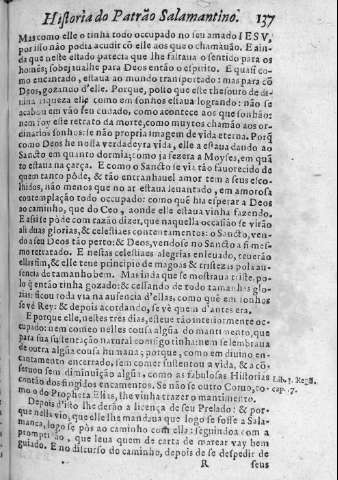 Historia do Patrão Salamantino. 137
Mas como elle o tinha todo occupado no seu amado IESV,
por isso não podia acudir cõ elle aos que o chamauão. E ain-
da que neste estado parecia que lhe faltaua o sentido para os
homẽs, sobejaualhe para Deos então o espirito. E quasi co-
mo encantado, estaua ao mundo transportado: mas para cõ
Deos, gozando d'elle. Porque, posto que este thesouro de di-
uina riqueza elle como em sonhos estaua logrando: não se
acabou em vão seu cuidado, como acontece aos que sonhão:
nem foy este retrato da morte, como muytos chamão aos or-
dinarios sonhos: se não propria imagem de vida eterna. Porq̃
como Deos he nossa verdadeyra vida, elle a estaua dando ao
Sancto em quanto dormia; como ja fezera a Moyses, em quã
to estaua na çarça. E como o Sancto se via tão fauorecido de
quem tanto póde, & tão entranhauel amor tem a seus esco-
lhidos, não menos que no ar estaua leuantado, em amorosa
contemplação todo occupado: como quẽ hia esperar a Deos
ao caminho, que do Ceo, aonde elle estaua vinha fazendo.
E assi se póde com razão dizer, que naquella occasião se virão
ali duas glorias, & celestiaes contentamentos: o Sancto, ven-
do a seu Deos tão perto: & Deos, vendose no Sancto a si mes-
mo retratado. E nestas celestiaes alegrias enleuado, teuerão
ellas fim, & elle teue principio de magoas & tristezas pola au-
sencia de tamanho bem. Mas inda que se mostraua triste, po-
lo q̃ então tinha gozado: & cessando de todo tamanhas glo-
rias: ficou toda via na ausencia d'ellas, como quẽ em sonhos
se vé Rey: & depois acordando, se vè quem d'antes era.
E porque elle, nestes tres dias, esteue tão interiormente oc-
cupado: nem comeo nelles cousa algũa do mantimento, que
para sua sustentação natural comsigo tinha: nem se lembraua
de outra algũa cousa humana; porque, como em diuino en-
cantamento encerrado, sem comer sustentou a vida, & a cõ-
seruou sem diminuição algũa, como as fabulosas Historias
contão dos fingidos encamentos. Se não se outro Coruo, co-
mo o do Propheta Elias, lhe vinha trazer o mantimento.
Lib. 3. Regũ.
cap. 17.
Depois d'isto lhe derão a licença de seu Prelado: & por-
que nella vio, que elle lhe mandaua que logo se fosse a Sala-
manca, logo se pòs ao caminho com ella: seguindoa com a
promptidão, que leua quem de carta de marear vay bem
guiado. E no discurso do caminho, depois de se despedir de
R seus